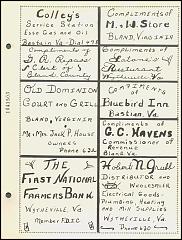 Colley's
Service Station
Esso Gas and Oil
Bastain Va - Dial
Compliments of
G. A. Repass
Bland County
Old Dominion
Court and Grill
Bland, Virginia
Mr. & Mrs. Jack P. House
Owners
Phone
The
First National
Farmers Bank
Wytheville, Va.
Member F.D.I.C.
Compliments of
M. & N. Store
Bland, Virginia
Compliments of
Restaurant
Wytheville Va
Compliments of
Bluebird Inn
Bastian, Va.
Compliments of
G.C. Havens
Commissioner of
Revenue
Bland Va.
Distributor
and Wholesaler
Electrical Goods
Plumbing, Heating
and Mill Supplies
Wytheville, Va.
Phone 620